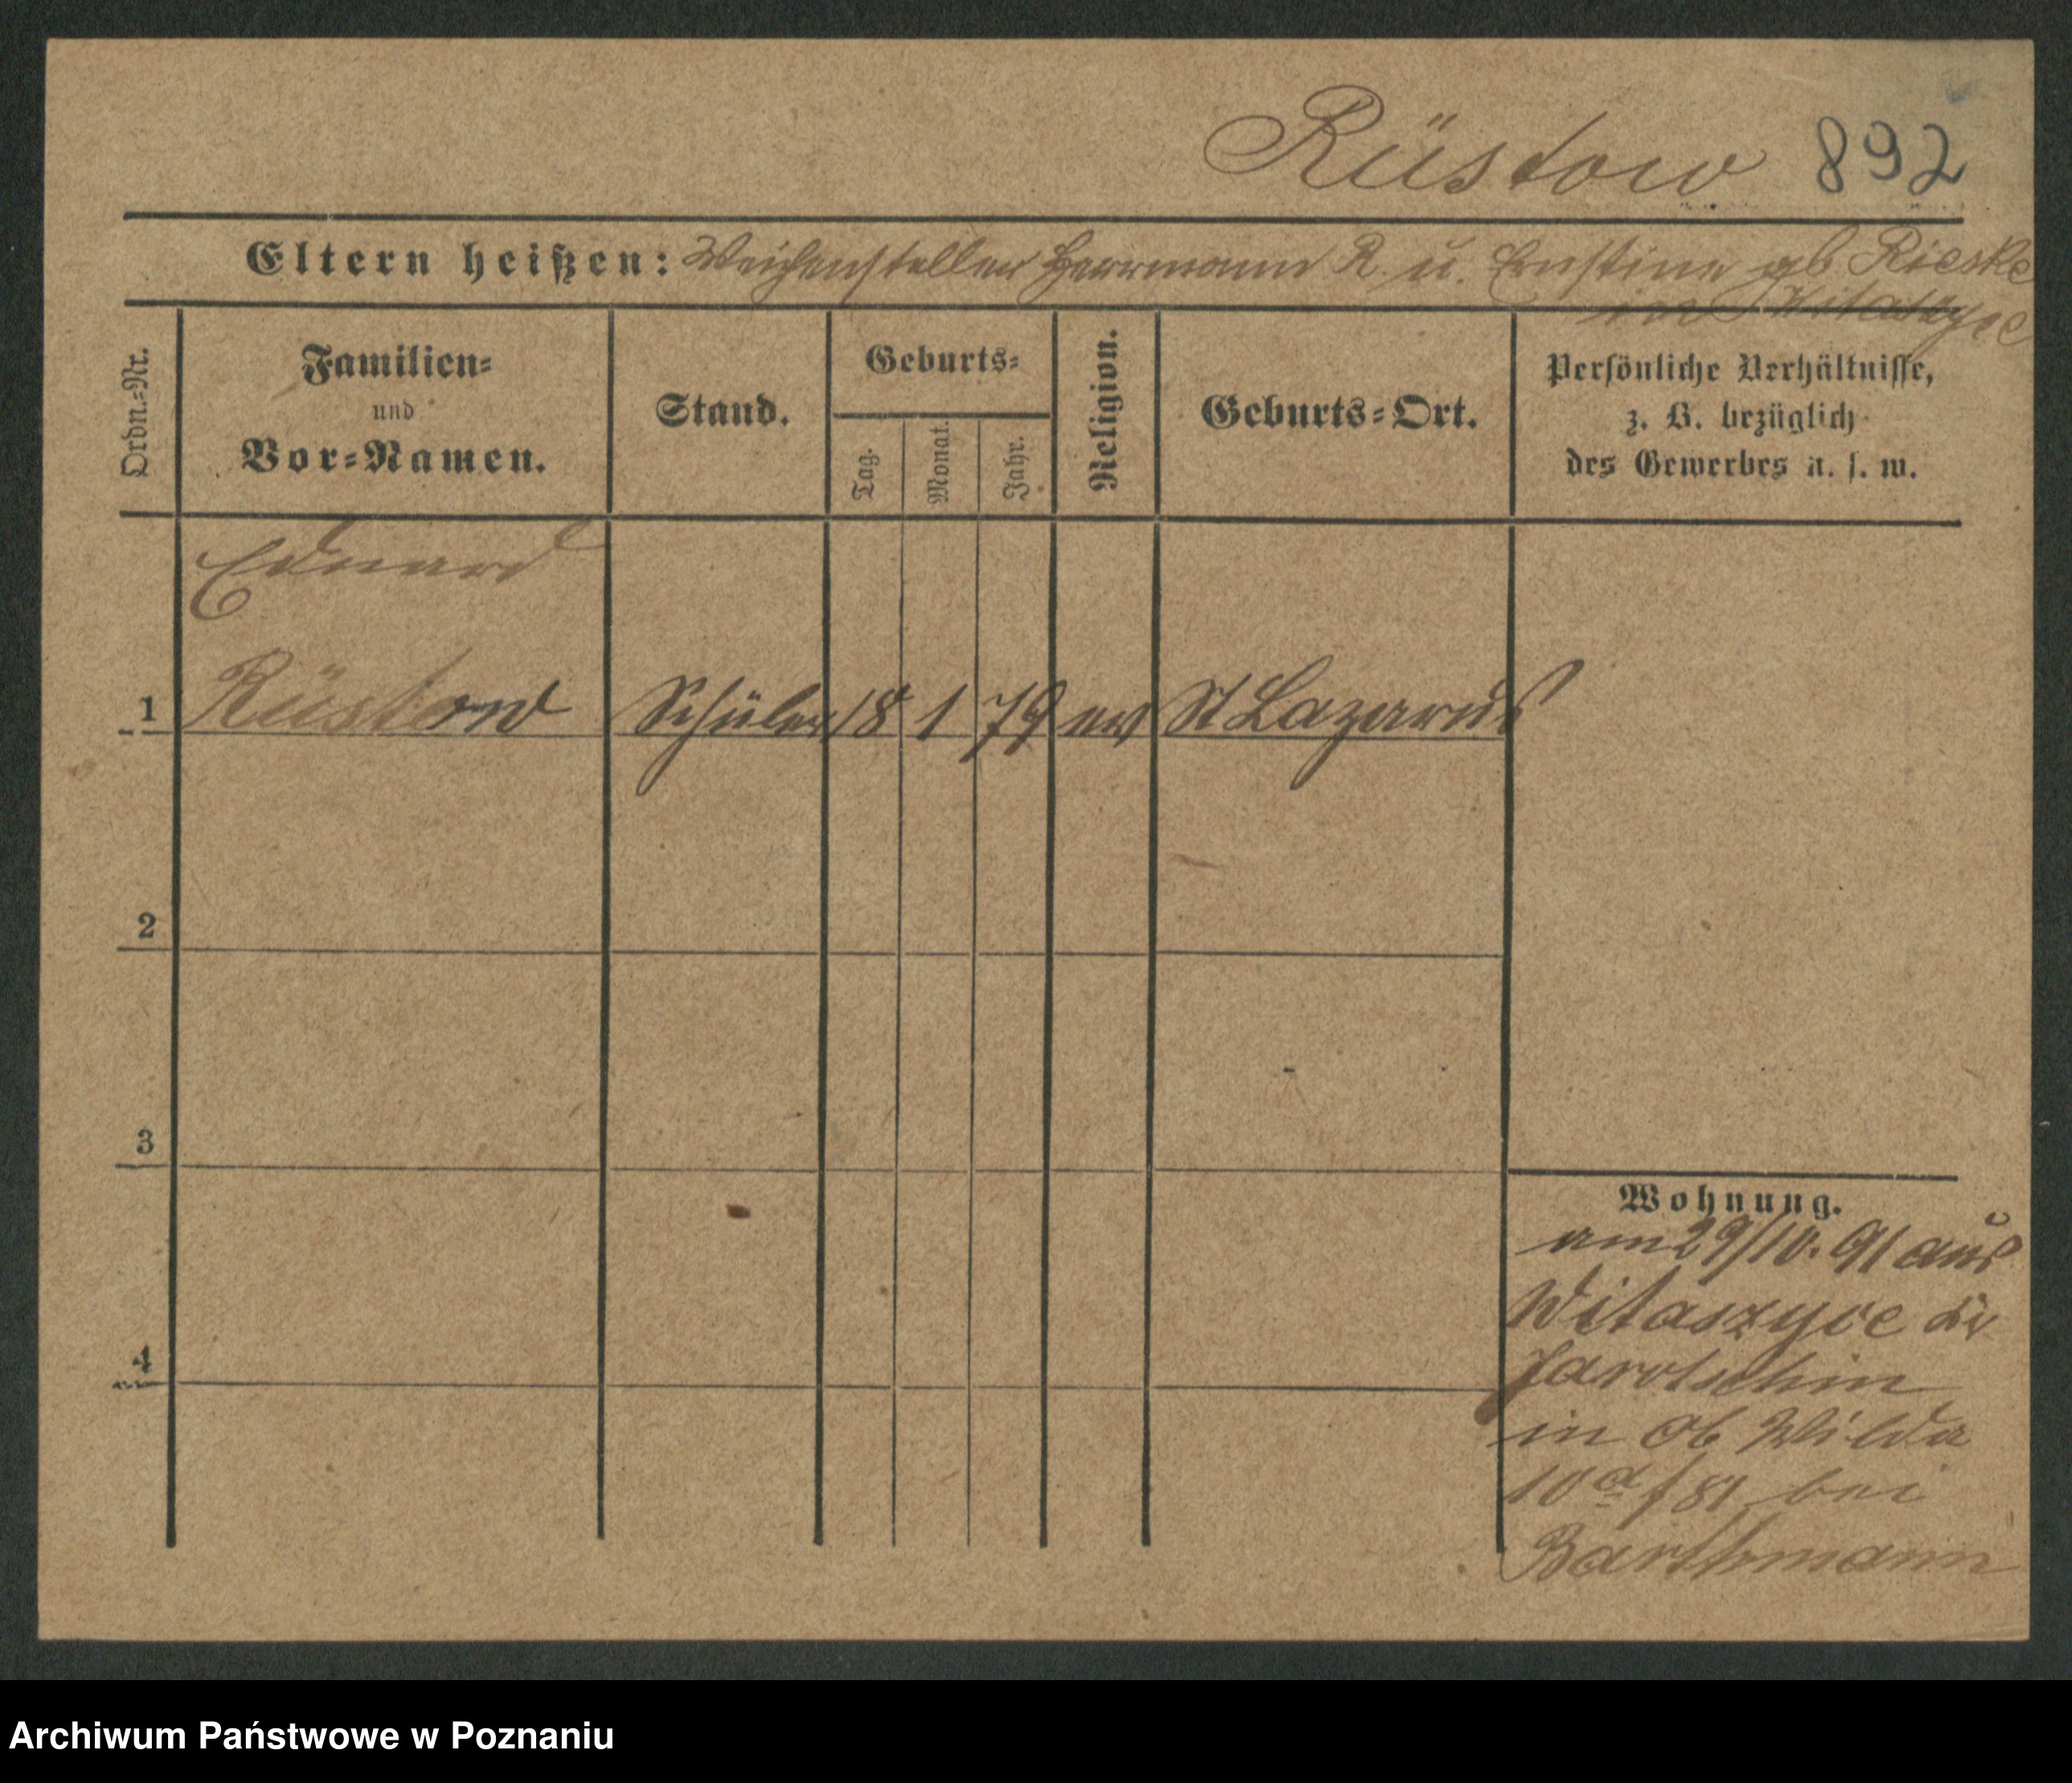 Rüstow 892
Eltern heißen: Weichensteller Herrmann R. u. Ernstine gb Rieske
in Witaszyce
Ordn.-Nr.
Familien-
und
Vor-Namen.
Stand.
Geburts-
Tag.
Monat.
Jahr.
Religion.
Geburts-Ort.
Persönliche Verhältnisse,
z. B. bezüglich
des Gewerbes u. s. w.
Eduard
1 Rüstow Schüler 18 1 79 ev St Lazarus
2
3
4
Wohnung.
am 29/10. 91 aus
Witaszyce Kr
Jarotschin
in Ob Wilda
bei
Barthmann
Archiwum Państwowe w Poznaniu